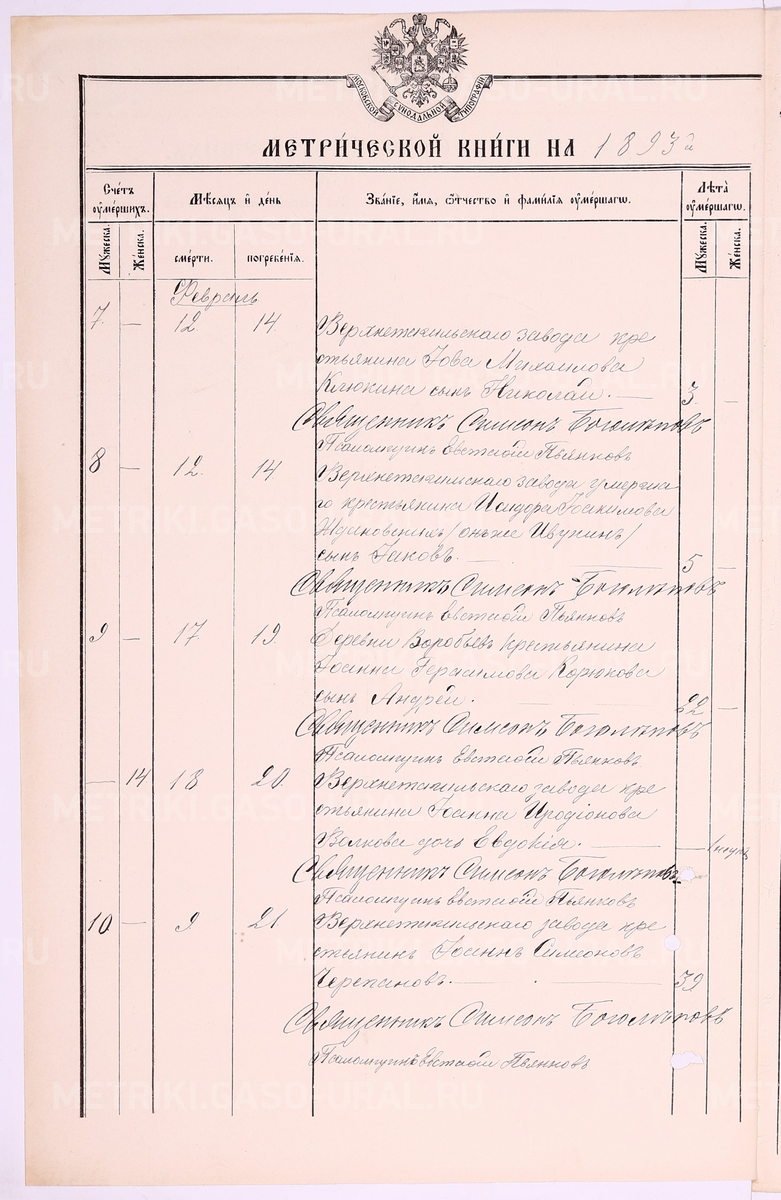 МОСКОВСКОЙ СѴНОДАЛЬНОЙ ТИПОГРАФІИ
МЕТРИ́ЧЕСКОЙ КНИ́ГИ НА 1893 й
Сче́тъ ᲂу҆ме́ршихъ.
Мѣ́сяцъ и҆ де́нь
Зва́нїе, и҆́мѧ, ѻ҆́тчество и҆ фами́лїѧ ᲂу҆ме́ршагѡ.
Лѣ́та ᲂу҆ме́ршагѡ.
Мꙋ́жеска.
Же́нска.
сме́рти.
погребе́нїѧ.
Мꙋ́жеска.
Же́нска.
Февраль
7. — 12. 14. Верхнетагильскаго завода кре
стьянина Іова Михаилова
Клюкина сынъ Николай. — 3. —
Священникъ Симеонъ Боголѣповъ
Псаломщикъ Евстафій Пьянковъ
8 — 12. 14 Верхнетагильскаго завода умерша
го крестьянина Исидора Іоакимова
/онъ же Ивукинъ/
сынъ Іаковъ. — 5 —
Священникъ Симеонъ Боголѣповъ
Псаломщикъ Евстафій Пьянковъ
9 — 17. 19. Деревни Воробьевъ крестьянина
Іоанна Герасимова Корюкова
сынъ Андрей. — 22 —
Священникъ Симеонъ Боголѣповъ
Псаломщикъ Евстафій Пьянковъ
— 14 18 20. Верхнетагильскаго завода кре
стьянина Іоанна Иродіонова
Волкова дочь Евдокія. — — 1
Священникъ Симеонъ Боголѣповъ
Псаломщикъ Евстафій Пьянковъ
10 — 9 21 Верхнетагильскаго завода кре
стьянинъ Іоаннъ Симеоновъ
Черепановъ. — 39
Священникъ Симеонъ Боголѣповъ
Псаломщикъ Евстафій Пьянковъ
METRIKI.GASO-URAL.RU